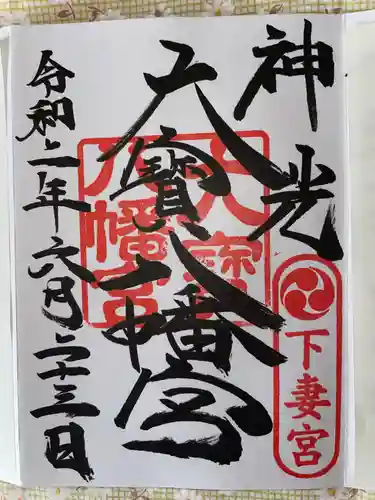 神光
下妻宮
大寳八幡宮
大寳八幡宮
令和二年六月二十三日